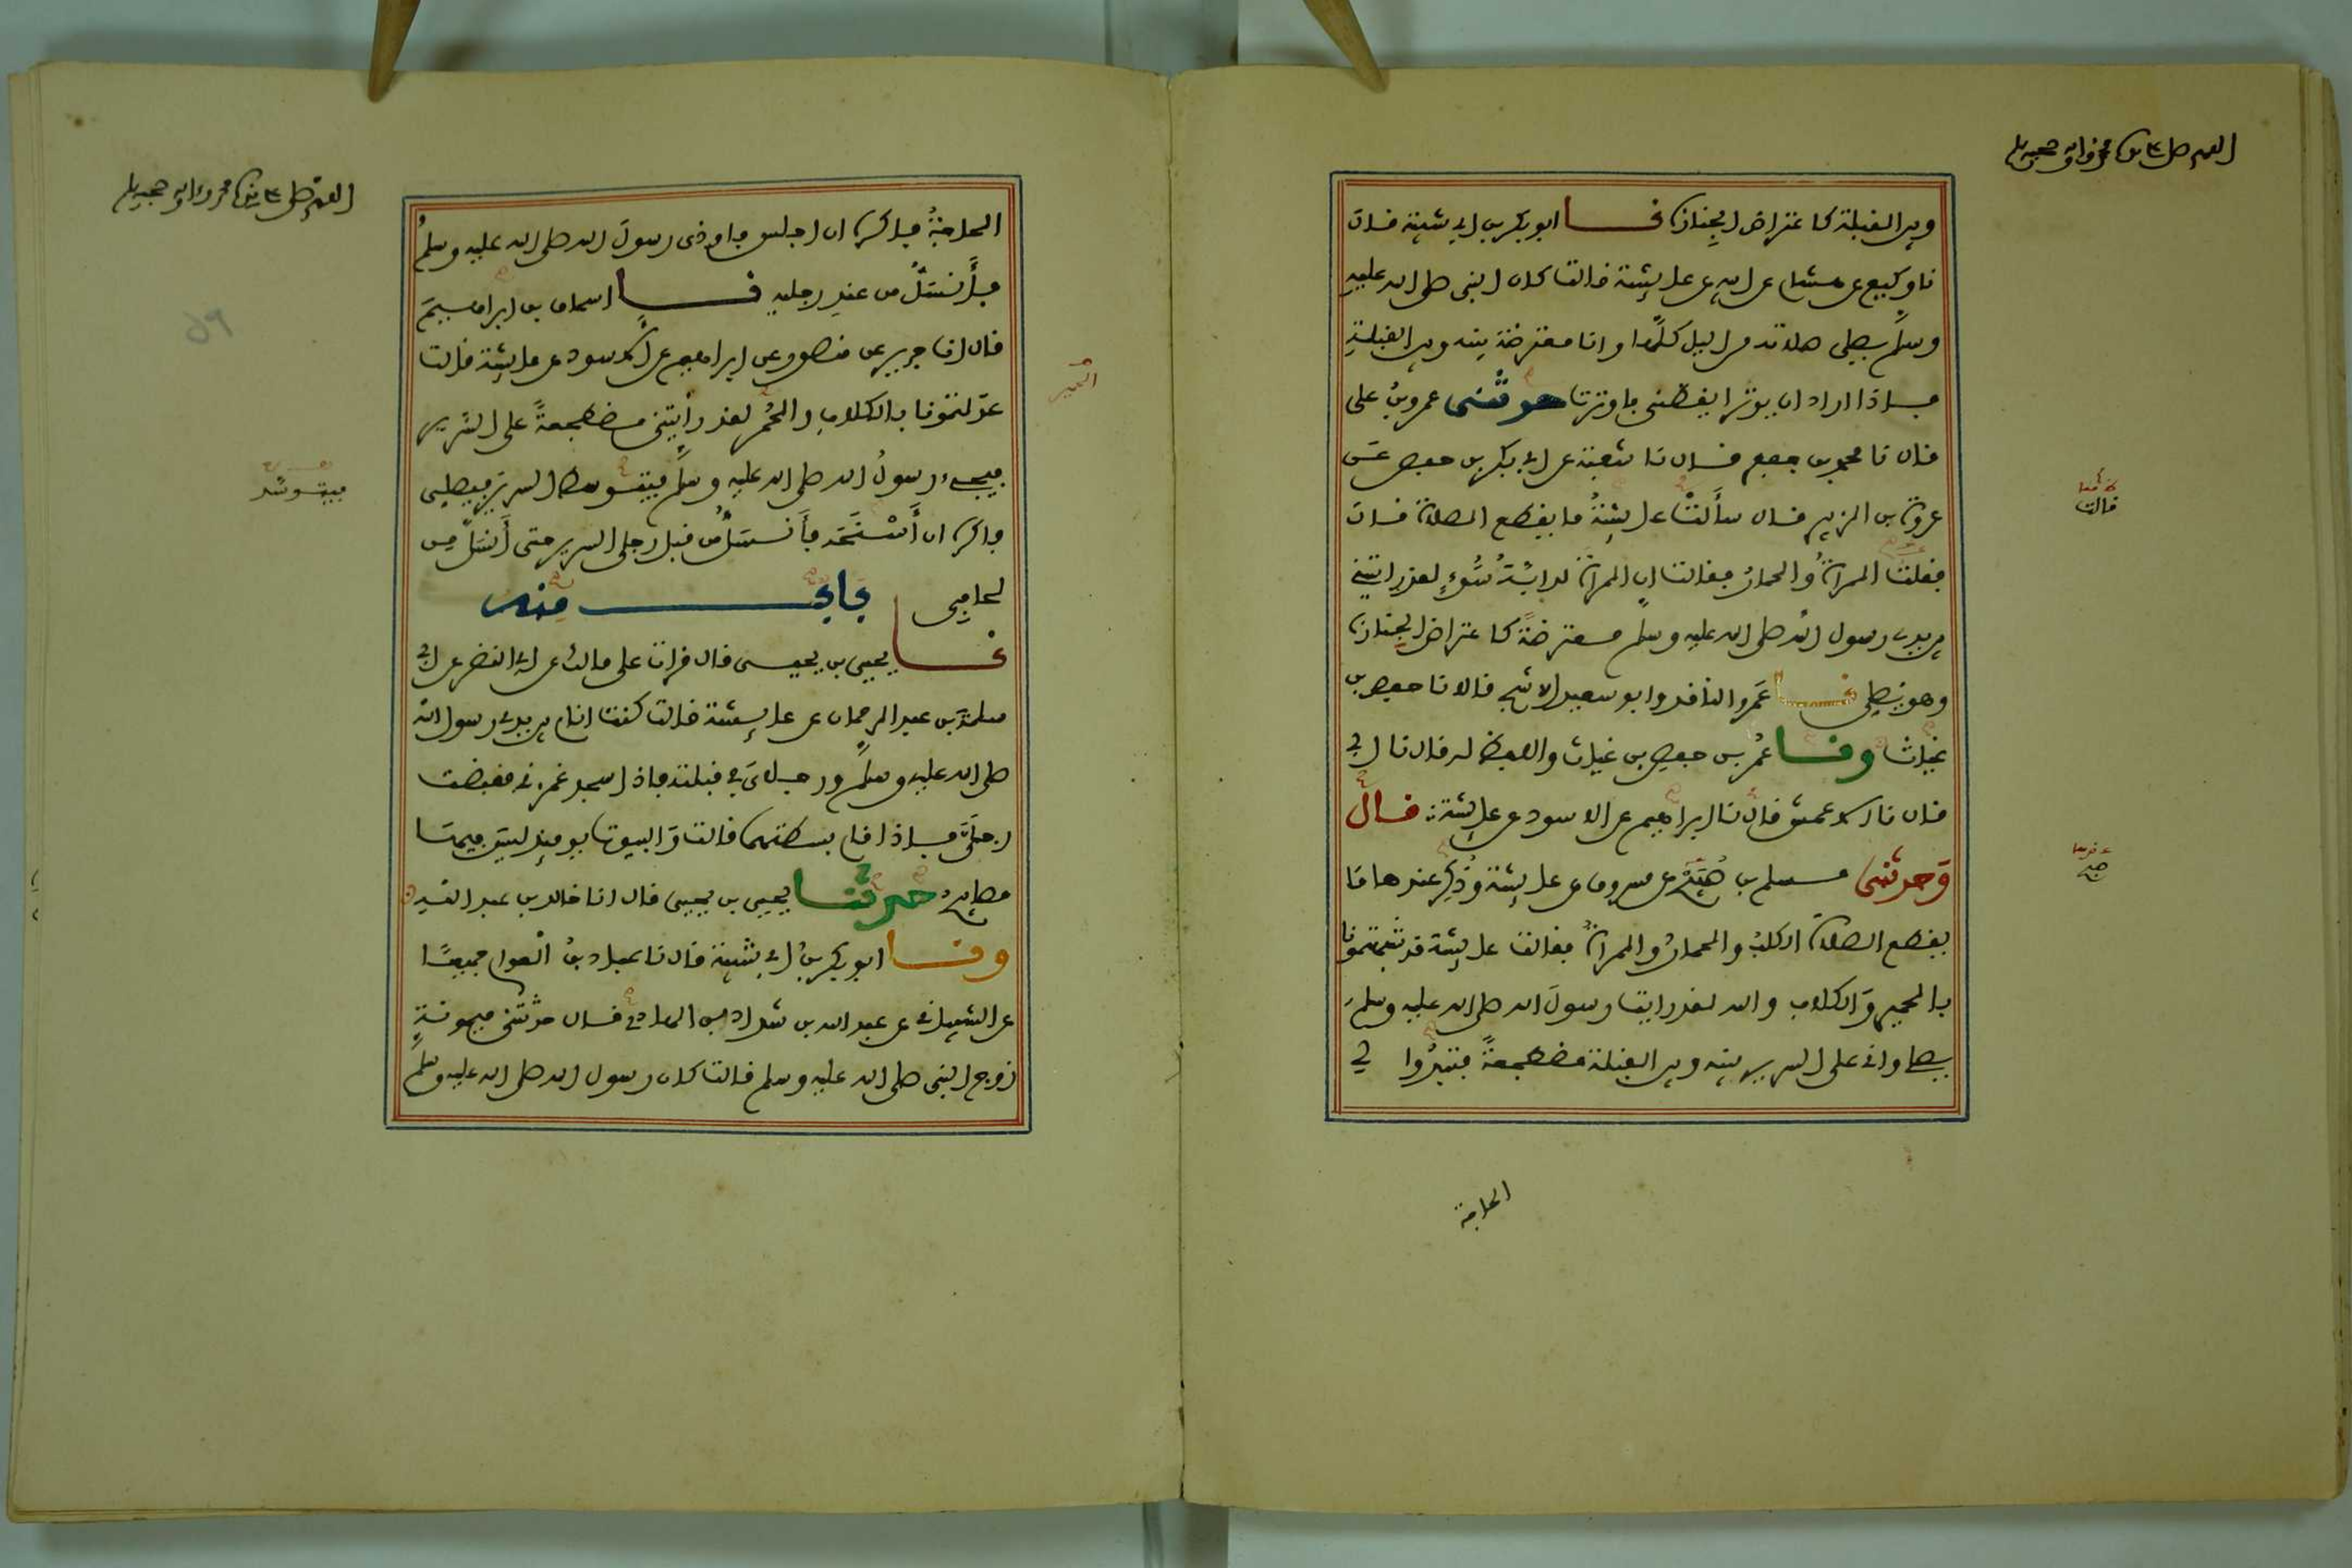 اللهم صل على سيدنا محمد وءاله وصحبه وسلم
وبين القبلة كاعتراض الجِنازة نــا ابو بكر بن ابي شيبة قال
نا وكيع عن هشام عن ابيه عن عايشة قالت كان النبي صلى الله عليه
وسلم يصلي صلاته من الليل كلها وانا معترضة بينه وبين القبلة
فاذا اراد ان يوتر ايقظني فاوترت حدثني عمرو بن علي
قال نا محمد بن جعفر قال نا شعبة عن ابي بكر بن حفص عن
عروة بن الزبير قال سألتْ عايشةُ ما يقطع الصلاة قال
فقلت المرأةُ والحمارُ فقالت ان المرأة لدابّةُ سُوءٍ لقد رايتني
بين يدي رسول الله صلى الله عليه وسلم معترضةً كاعتراض الجِنازة
وهو يصلي نــا عَمرو الناقد وابو سعيد الاشج قالا نا حفص بن
غياث ونــا عُمر بن حفص بن غياث واللفظ له قال نا ابي
قال نا الاعمش قال نا ابراهيم عن الاسود عن عايشة: قال
وَحدثني مسلم بن صُبَيْحٍ عن مسروق عن عايشة وذُكِر عندها مَا
يقطع الصلاة الكلبُ والحمارُ والمرأةُ فقالت عايشة قد شبهتمونا
بالحمير وَالكلاب والله لقد رايت رسولَ الله صلى الله عليه وسلم
يصلي واني على السرير بينه وبين القبلة مضطجعةً فتبدُوا لي
قالت
صح
الحاجة
اللهم صل على سيدنا محمد وءاله وصحبه وسلم
الحاجةُ فاكره ان اجلس فاوذي رسولَ الله صلى الله عليه وسلم
فأَنسَلُّ من عندِ رجليه نــا اسحاق بن ابراهيمَ
قال انا جرير عن منصور عن ابراهيم عن الاسود عن عايشة قالت
عدلتمونا بالكلاب والحُمر لقد رأيتني مضطجعةً على السَّرير
فيجيءُ رسولُ الله صلى الله عليه وسلم فيتوسط السرير فيصلي
فاكره ان أَسْنَحَه فأَنسَلُّ من قبل رجلي السرير حتى أَنسَلَّ من
لحافي بابــــــ منه
نــا يحيى بن يحيى قال قرات على مالك عن ابي النضر عن ابي
سلمة بن عبد الرحمان عن عايشة قالت كنت انام بين يدي رسول الله
صلى الله عليه وسلم ورجلايَ في قبلته فاذا سجد غمزني فقبضت
رجلَيَّ فاذا قام بسطتهما قالت وَالبيوت يوميذٍ ليسَ فيها
مصابيح حدثنــا يحيى بن يحيى قال انا خالد بن عبد الله
ونــا ابو بكر بنُ ابي شيبة قال نا عباد بنُ العوام جميعًا
عن الشيباني عن عبد الله بن شداد بن الهادي قال حدثتني ميمونةُ
زوج النبي صلى الله عليه وسلم قالت كان رسول الله صلى الله عليه وسلم
فيتوسّد